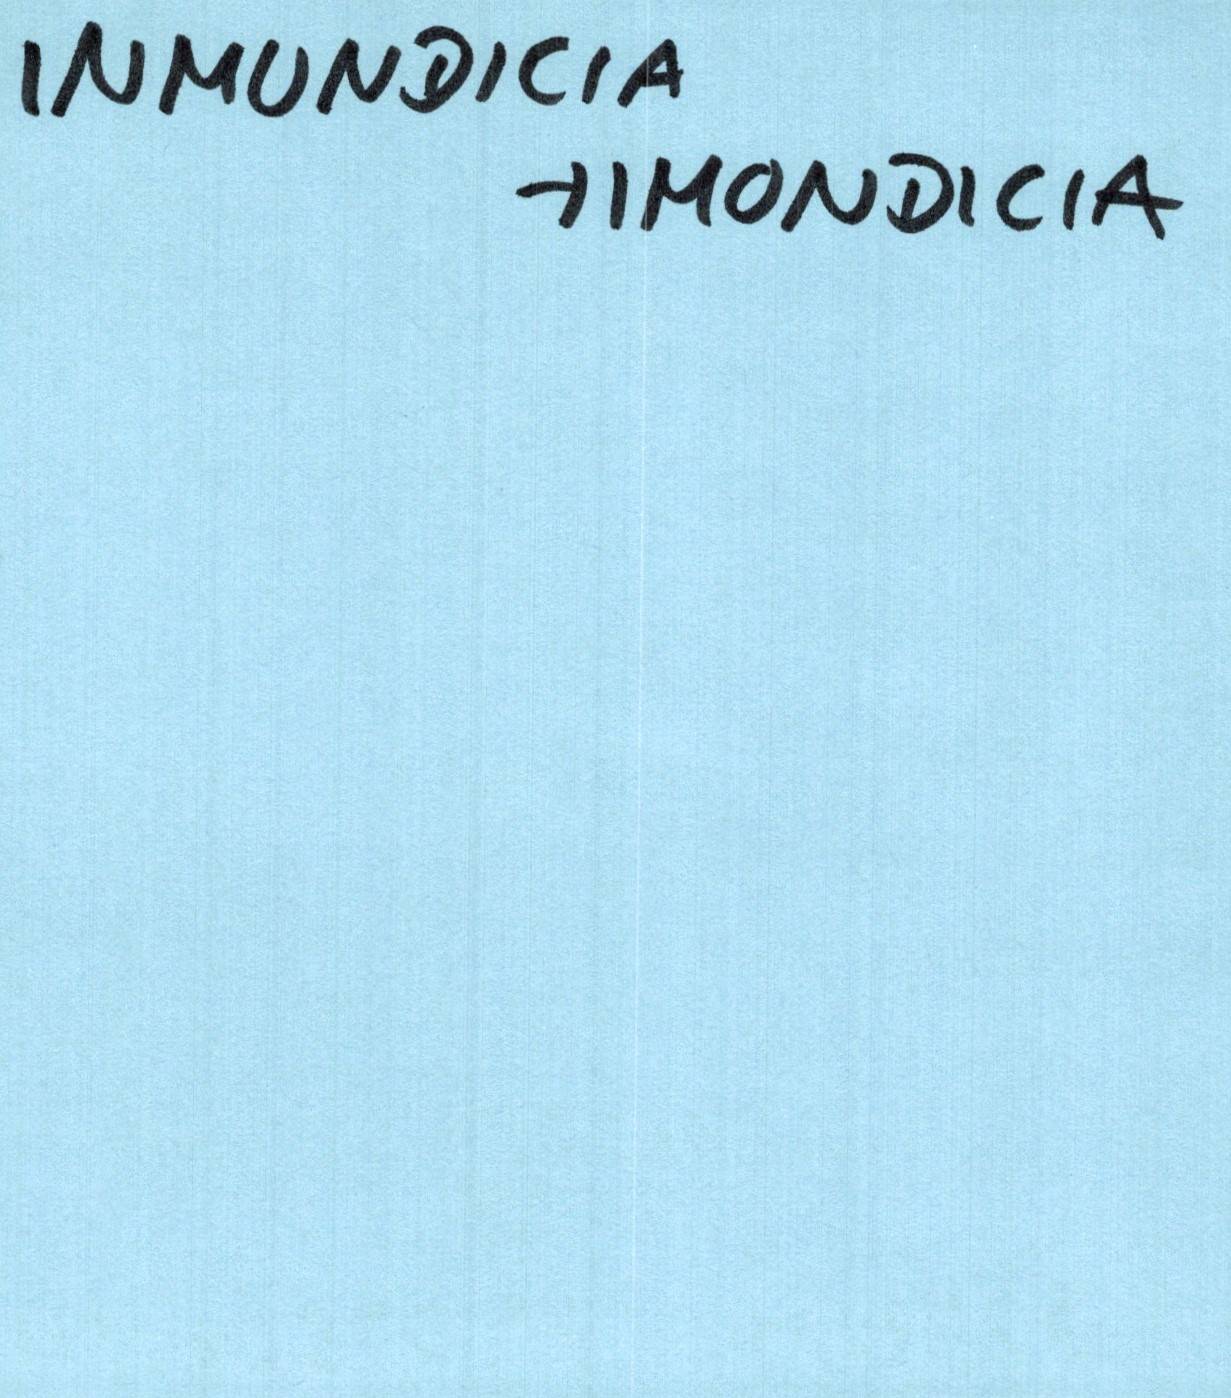 INMUNDICIA
→IMONDICIA